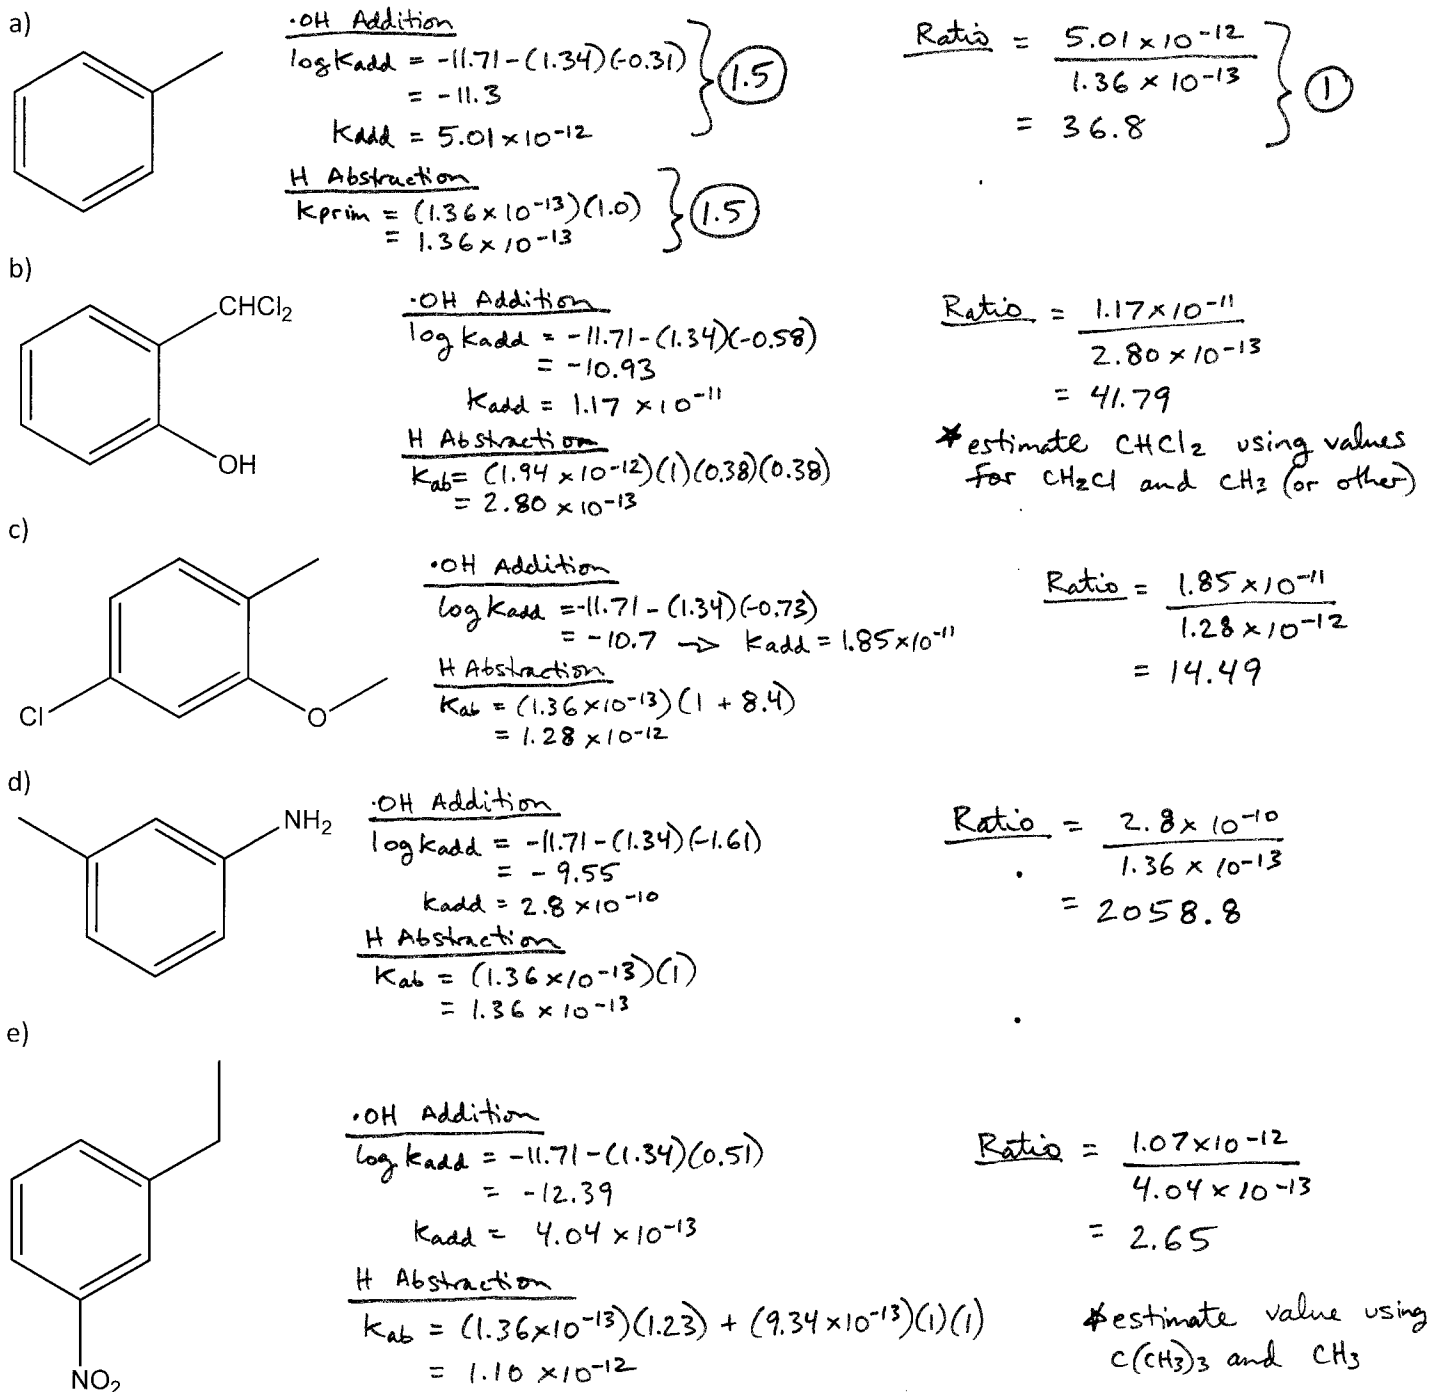 a)
·OH Addition
log Kadd = -11.71-(1.34)(-0.31)
= -11.3
Kadd = 5.01×10-12
1.5
H Abstraction
Kprim = (1.36×10-13)(1.0)
= 1.36×10-13
1.5
Ratio = 5.01×10-12
1.36×10-13
= 36.8
1
b)
CHCl2
OH
·OH Addition
log Kadd = -11.71-(1.34)(-0.58)
= -10.93
Kadd = 1.17×10-11
H Abstraction
Kab= (1.94×10-12)(1)(0.38)(0.38)
= 2.80×10-13
Ratio = 1.17×10-11
2.80×10-13
= 41.79
*estimate CHCl2 using values
for CH2Cl and CH3 (or other)
c)
Cl
O
·OH Addition
log Kadd =-11.71-(1.34)(-0.73)
= -10.7 → Kadd = 1.85×10-11
H Abstraction
Kab = (1.36×10-13)(1 + 8.4)
= 1.28×10-12
Ratio = 1.85×10-11
1.28×10-12
= 14.49
d)
NH2
·OH Addition
log Kadd = -11.71-(1.34)(-1.61)
= -9.55
Kadd = 2.8×10-10
H Abstraction
Kab = (1.36×10-13)(1)
= 1.36×10-13
Ratio = 2.8×10-10
1.36×10-13
= 2058.8
e)
NO2
·OH Addition
log Kadd = -11.71-(1.34)(0.51)
= -12.39
Kadd = 4.04×10-13
H Abstraction
Kab = (1.36×10-13)(1.23) + (9.34×10-13)(1)(1)
= 1.10×10-12
Ratio = 1.07×10-12
4.04×10-13
= 2.65
*estimate value using
C(CH3)3 and CH3